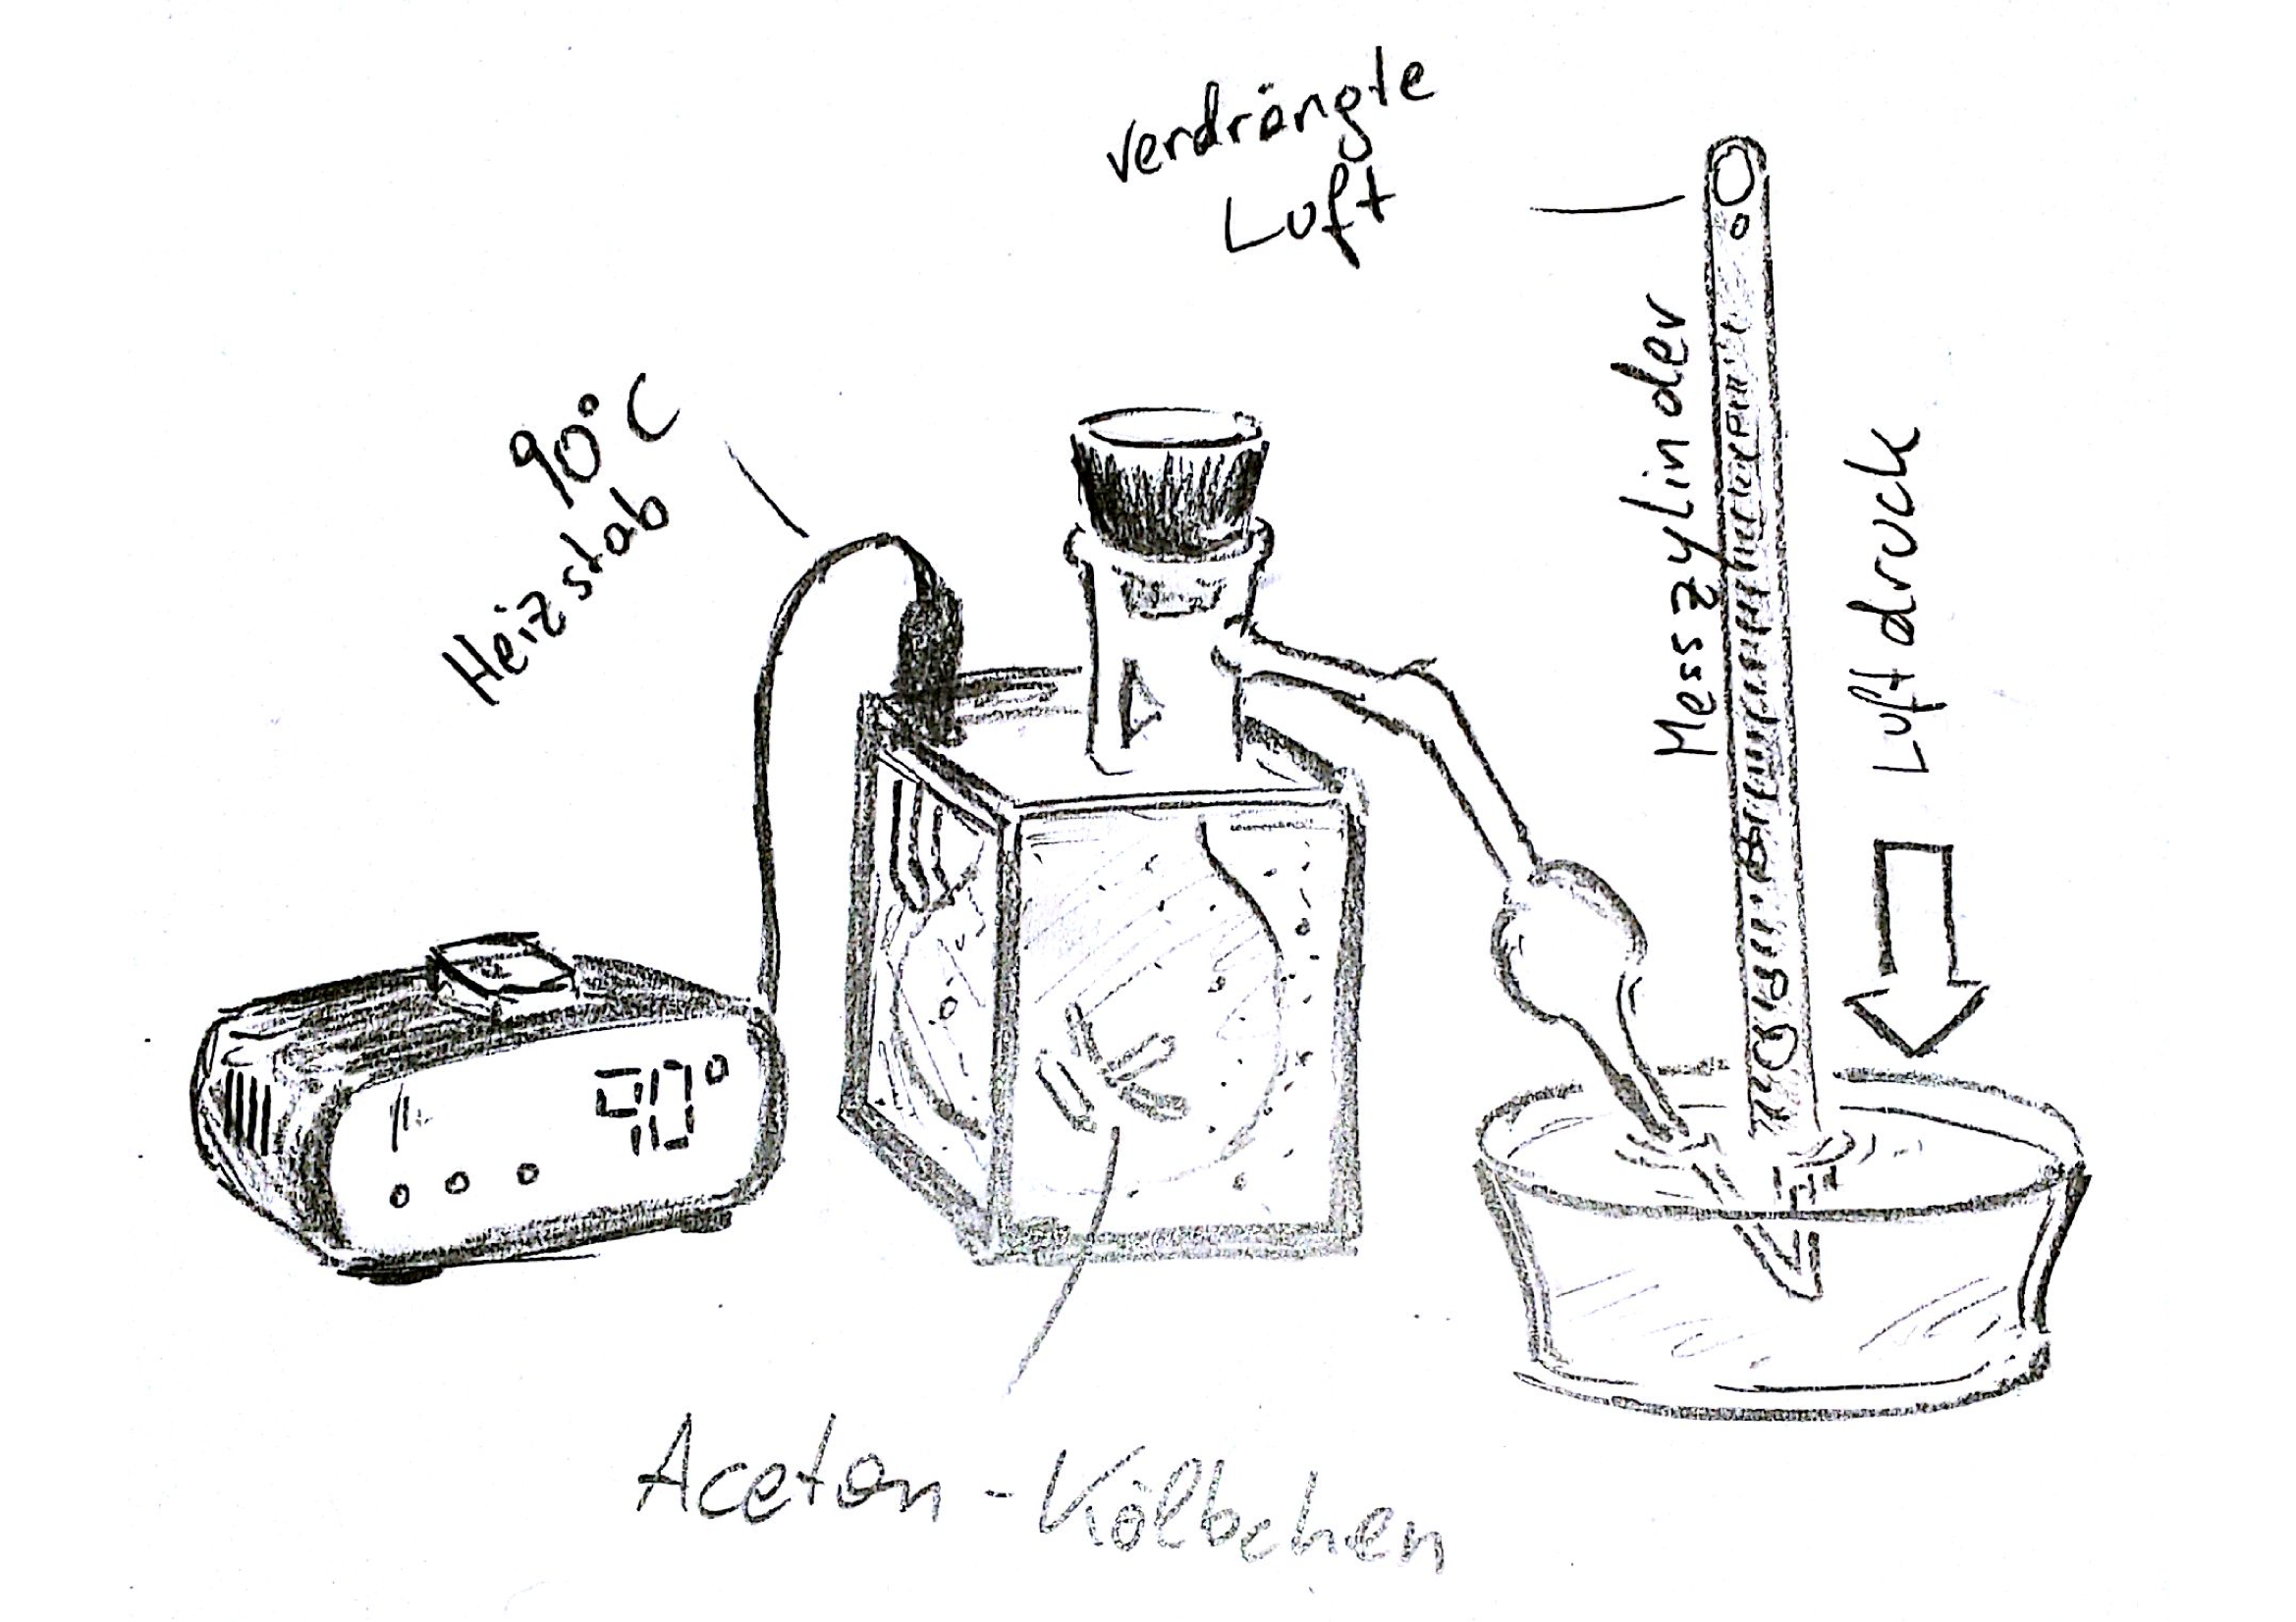 verdrängte
Luft
90°C
Heizstab
Messzylinder
Luftdruck
90°
Aceton-Kölbchen